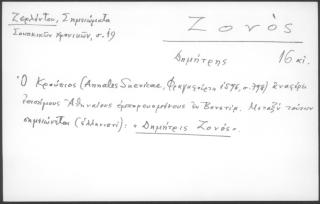 Ζερλέντου, Σημειώματα
Σουηκικῶν χρονικῶν, σ. 19
Ζονός
Δημήτρης 16 αἰ.
Ὁ Κρούσιος (Annales Suevicae, Φραγκφούρτη 1596, σ. 798) ἀναφέρει
ἐπισήμους Ἀθηναίους ἐμπορευομένους ἐν Βενετίᾳ. Μεταξὺ τούτων
σημειώνεται (ἑλληνιστί): "Δημήτρις Ζονός".